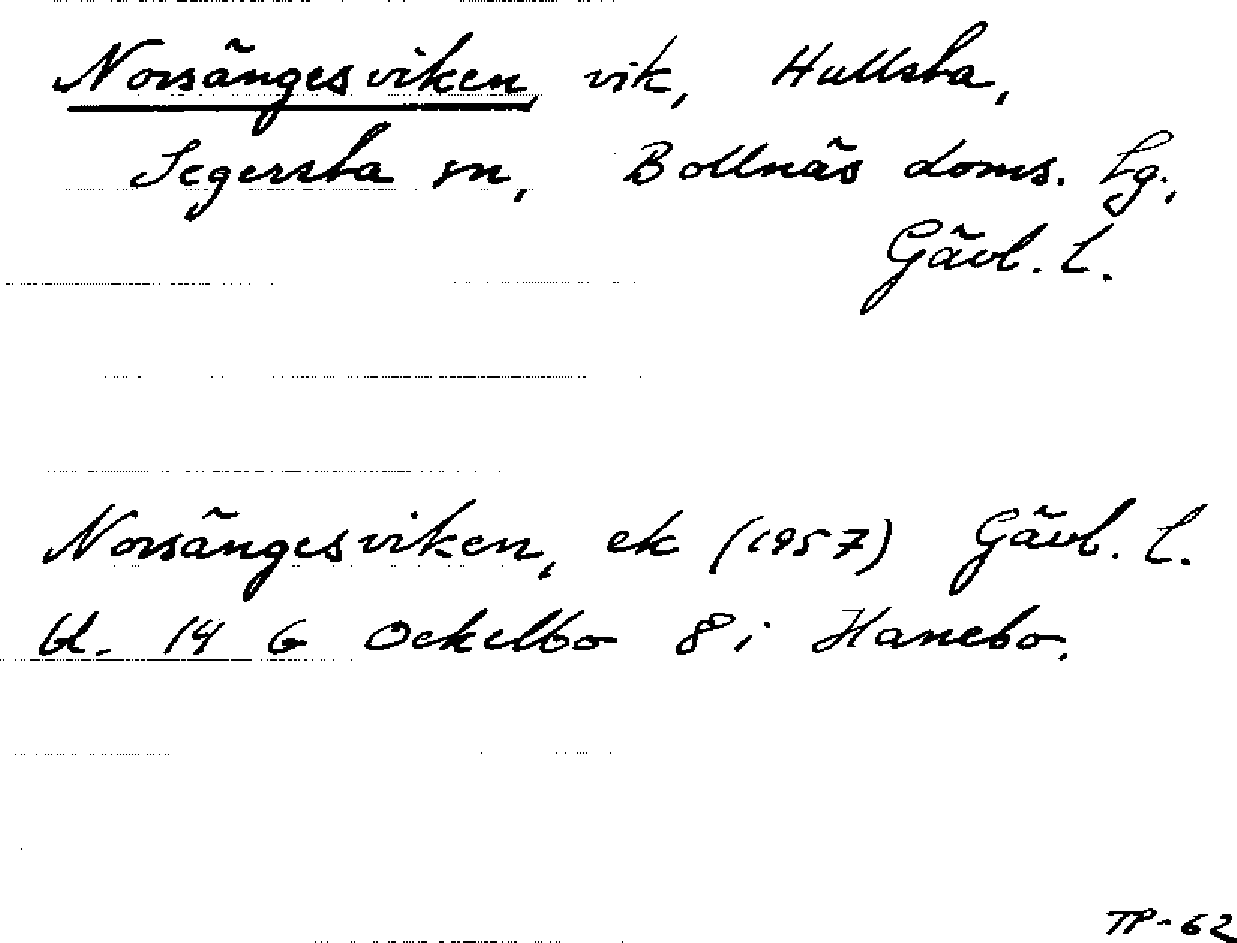 Norsängesviken, vik, Hullsta,
Segersta sn, Bollnäs doms. Lg.,
Gävl. L.
Norsängesviken, ek (1957) Gävl. L.
bl. 14 G Ockelbo 8 i Hanebo.
TP-62